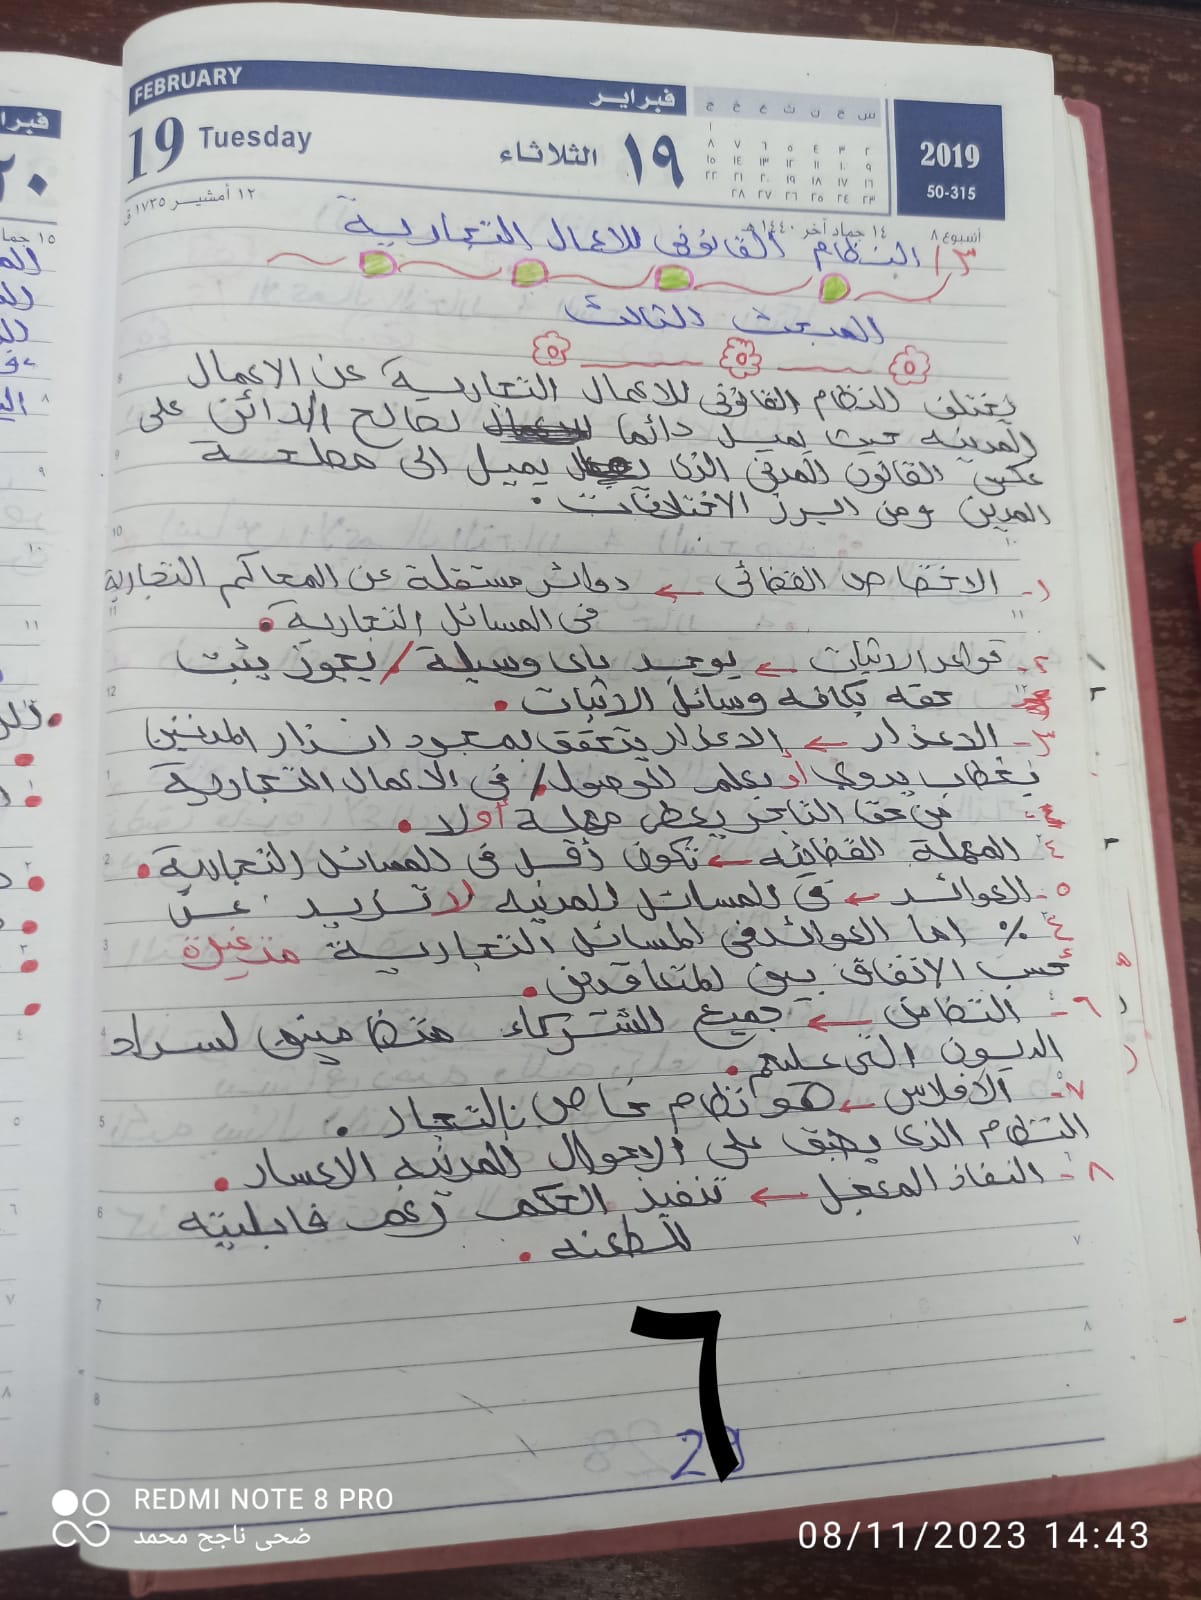 FEBRUARY
فبراير
19 Tuesday
الثلاثاء ١٩
2019
50-315
١٢ أمشير ١٧٣٥ ق
١٤ جماد آخر ١٤٤٠ هـ
أسبوع ٨
٣/ النظام القانونى للاعمال التجارية
المبحث الثالث
يختلف النظام القانونى للاعمال التجارية عن الاعمال
المدنيه حيث يميل دائما لصالح الدائن على
عكس القانون المدنى الذى يميل الى مصلحة
المدين ومن ابرز الاختلافات.
١- الاختصاص القضائى ← دوائر مستقلة عن المحاكم التجارية
فى المسائل التجارية.
٢- قواعد الاثبات ← يوجد باى وسيلة / يجوز يثبت
حقه بكافه وسائل الاثبات.
٣- الاعذار ← الاعذار يتحقق بمجرد انذار المدنين
بخطاب يدوى أو بعلم الوصول / فى الاعمال التجارية
من حق التاجر يعطى مهلة أولا.
٤ المهلة القضائيه ← تكون أقل فى المسائل التجارية.
٥- العوائد ← فى المسائل المدنيه لا تزيد عن
٤ % اما العوائد فى المسائل التجارية متغيرة
حسب الاتفاق بين المتعاقدين.
٦- التضامن ← جميع الشركاء متضامينين لسداد
الديون التى عليهم.
٧- الافلاس ← هو نظام خاص بالتجار.
النظام الذى يطبق على الاحوال المدنيه الاعسار.
٨- النفاذ المعجل ← تنفيذ الحكم رغم قابليته
للطعنه.
٦
29
REDMI NOTE 8 PRO
ضحى ناجح محمد
08/11/2023 14:43